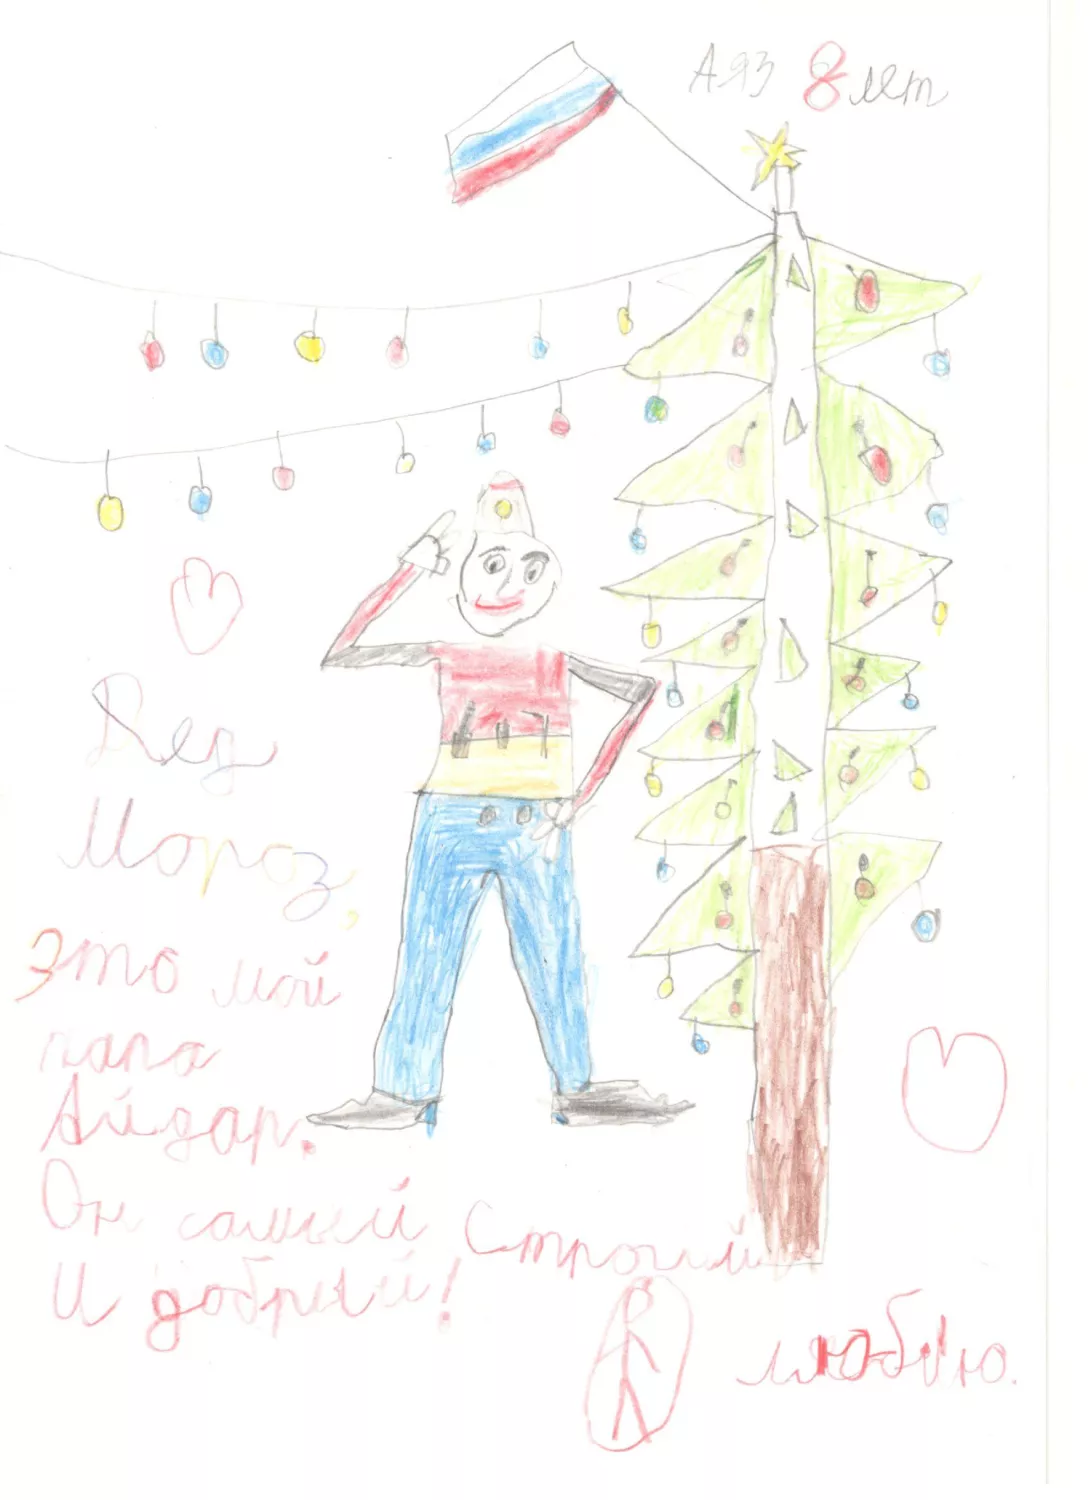 Аяз 8 лет
Дед
Мороз,
это мой
папа
Айдар.
Он самый Строгий
И добрый!
люблю.